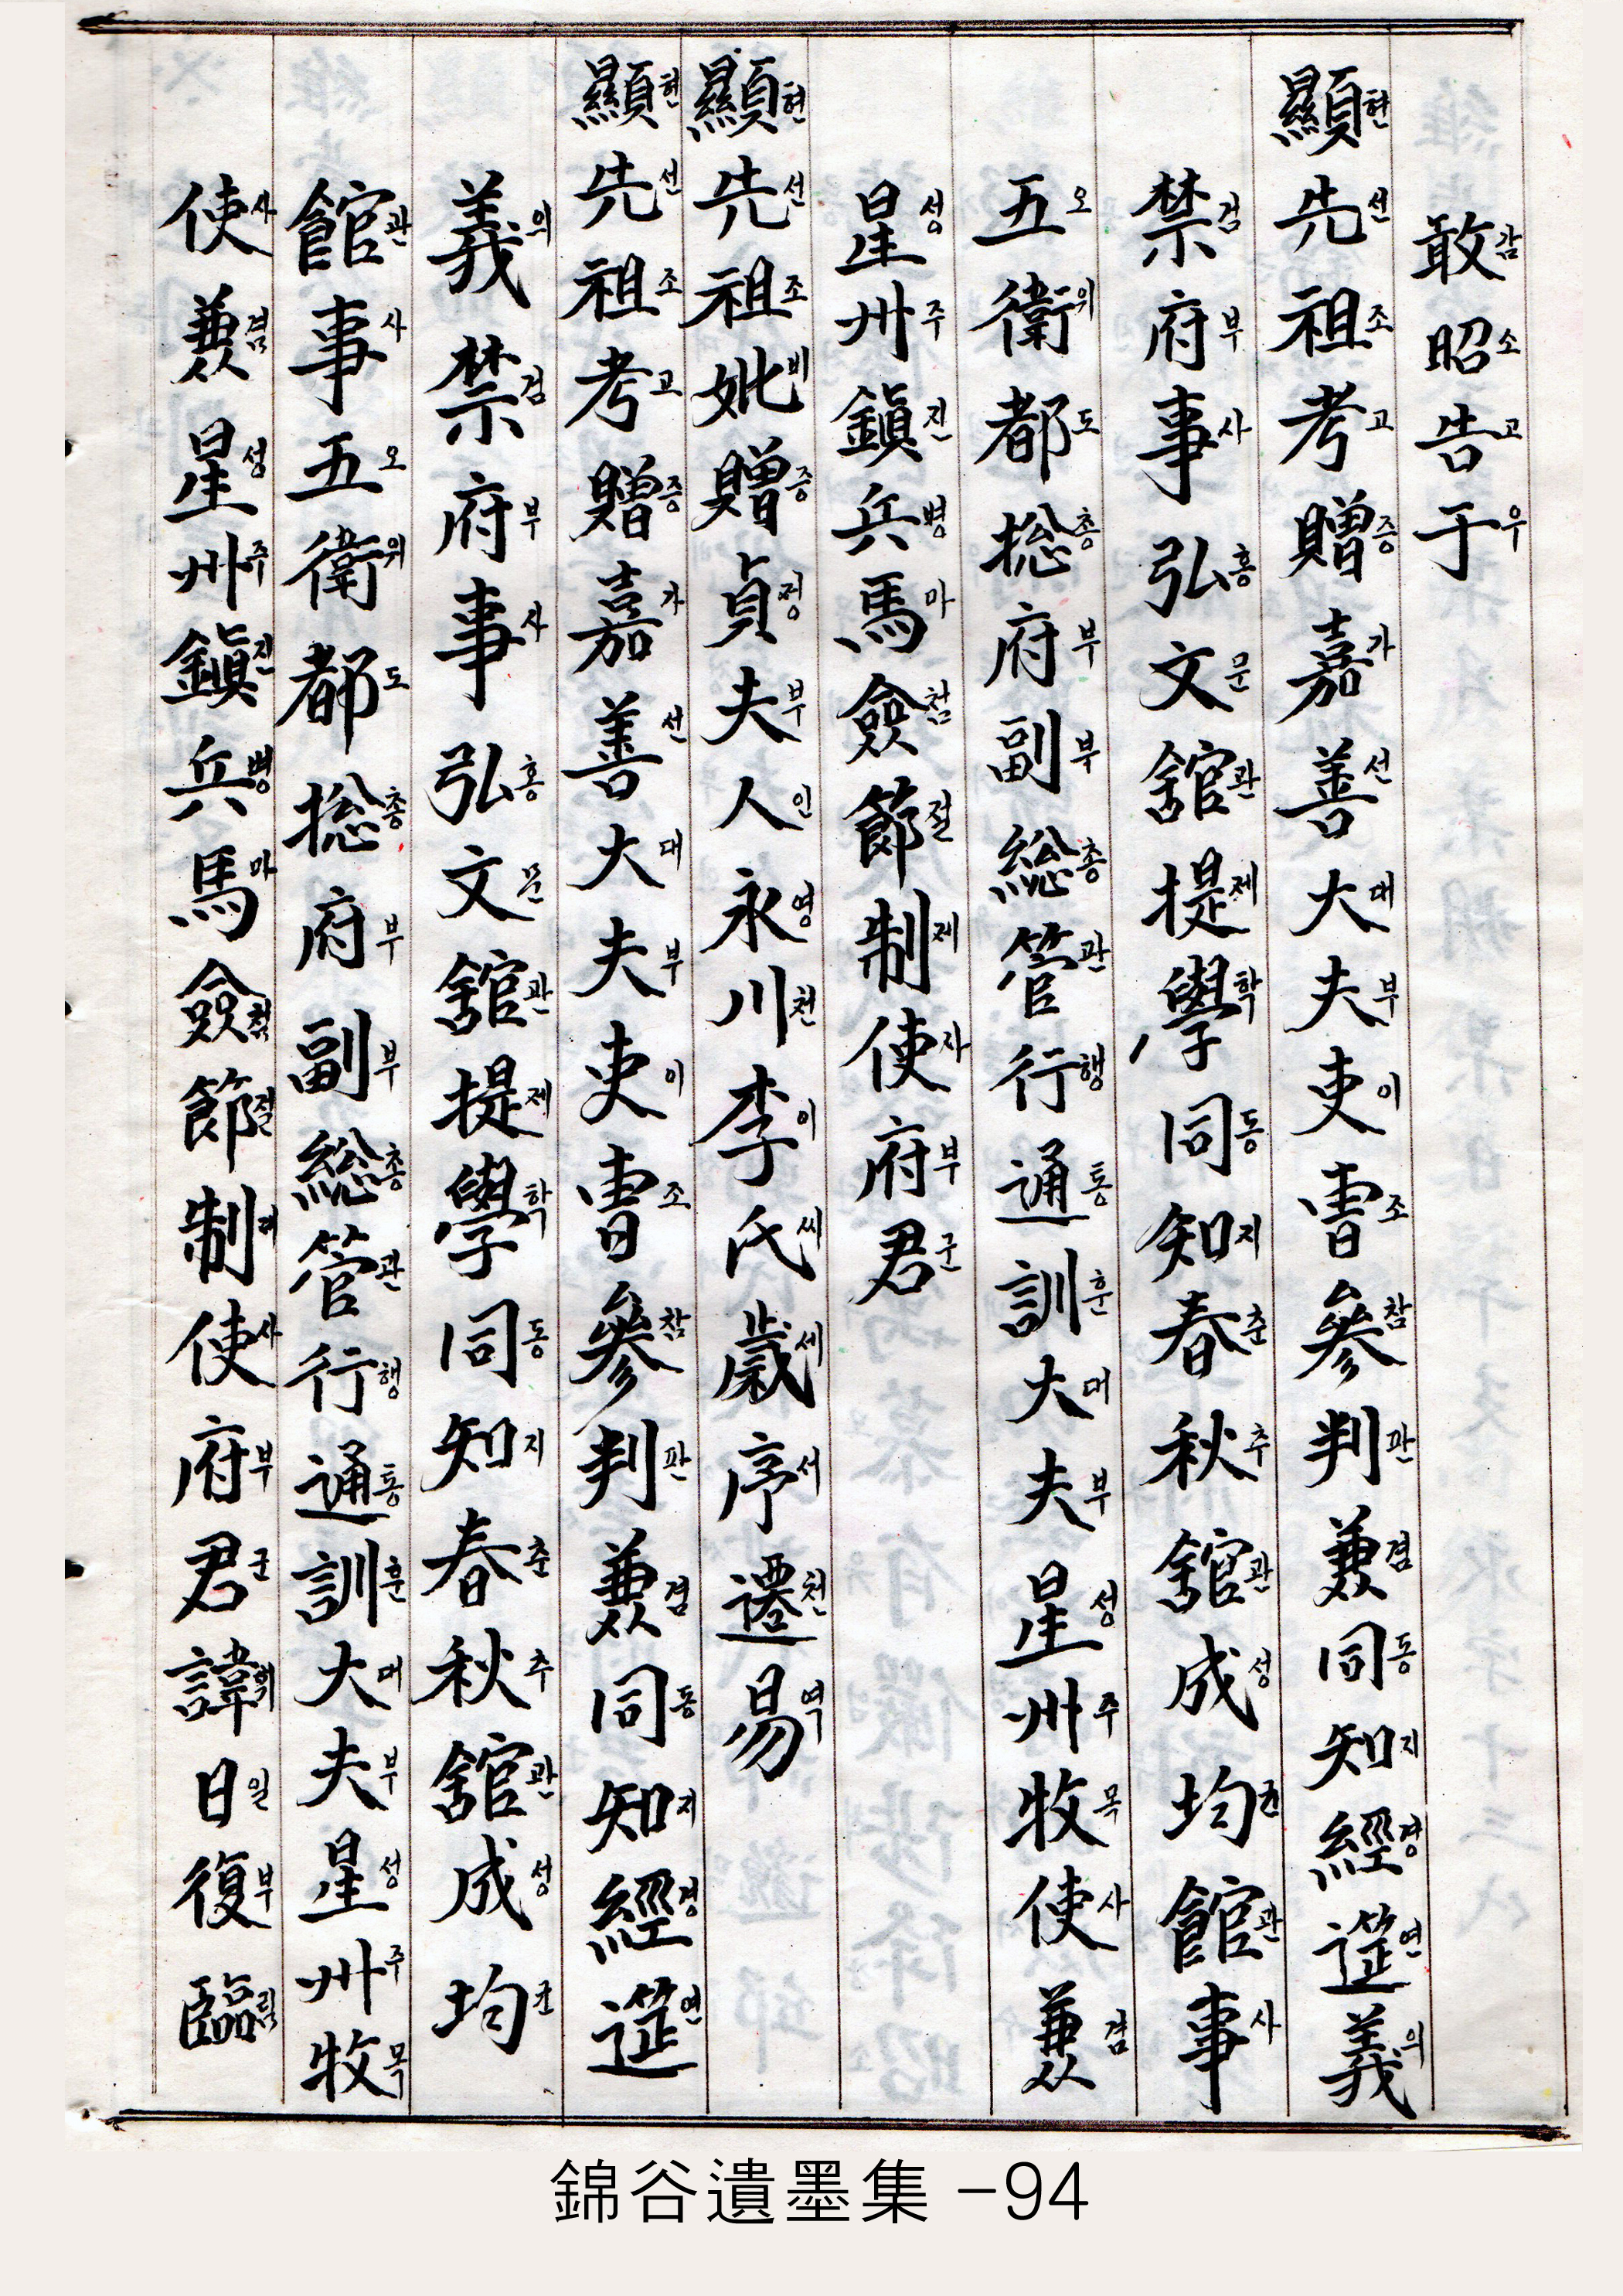 敢감 昭소 告고 于우
顯현 先선 祖조 考고 贈증 嘉가 善선 大대 夫부 吏이 曺조 參참 判판 兼겸 同동 知지 經경 筵연 義의
禁검 府부 事사 弘홍 文문 舘관 提제 學학 同동 知지 春춘 秋추 舘관 成성 均균 館관 事사
五오 衛위 都도 捴총 府부 副부 総총 管관 行행 通통 訓훈 大대 夫부 星성 州주 牧목 使사 兼겸
星성 州주 鎭진 兵병 馬마 僉첨 節절 制제 使자 府부 君군
顯현 先선 祖조 妣비 贈증 貞정 夫부 人인 永영 川천 李이 氏씨 歲세 序서 遷천 易역
顯현 先선 祖조 考고 贈증 嘉가 善선 大대 夫부 吏이 曺조 參참 判판 兼겸 同동 知지 經경 筵연
義의 禁검 府부 事사 弘홍 文문 舘관 提제 學학 同동 知지 春춘 秋추 舘관 成성 均균
館관 事사 五오 衛위 都도 捴총 府부 副부 総총 管관 行행 通통 訓훈 大대 夫부 星성 州주 牧목
使사 兼겸 星성 州주 鎭진 兵병 馬마 僉첨 節절 制제 使사 府부 君군 諱휘 日일 復부 臨림
錦谷遺墨集 -94